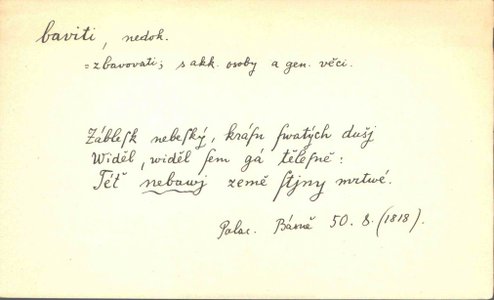 baviti, nedok.
= zbavovati; s akk. osoby a gen. věci.
Zábleſk nebeſký, kráſu ſwatých duſj
Widěl, widěl ſem gá těleſně:
Tétˇ nebawj země ſtjny mrtwé.
Palac. Básně 50. 8. (1818).